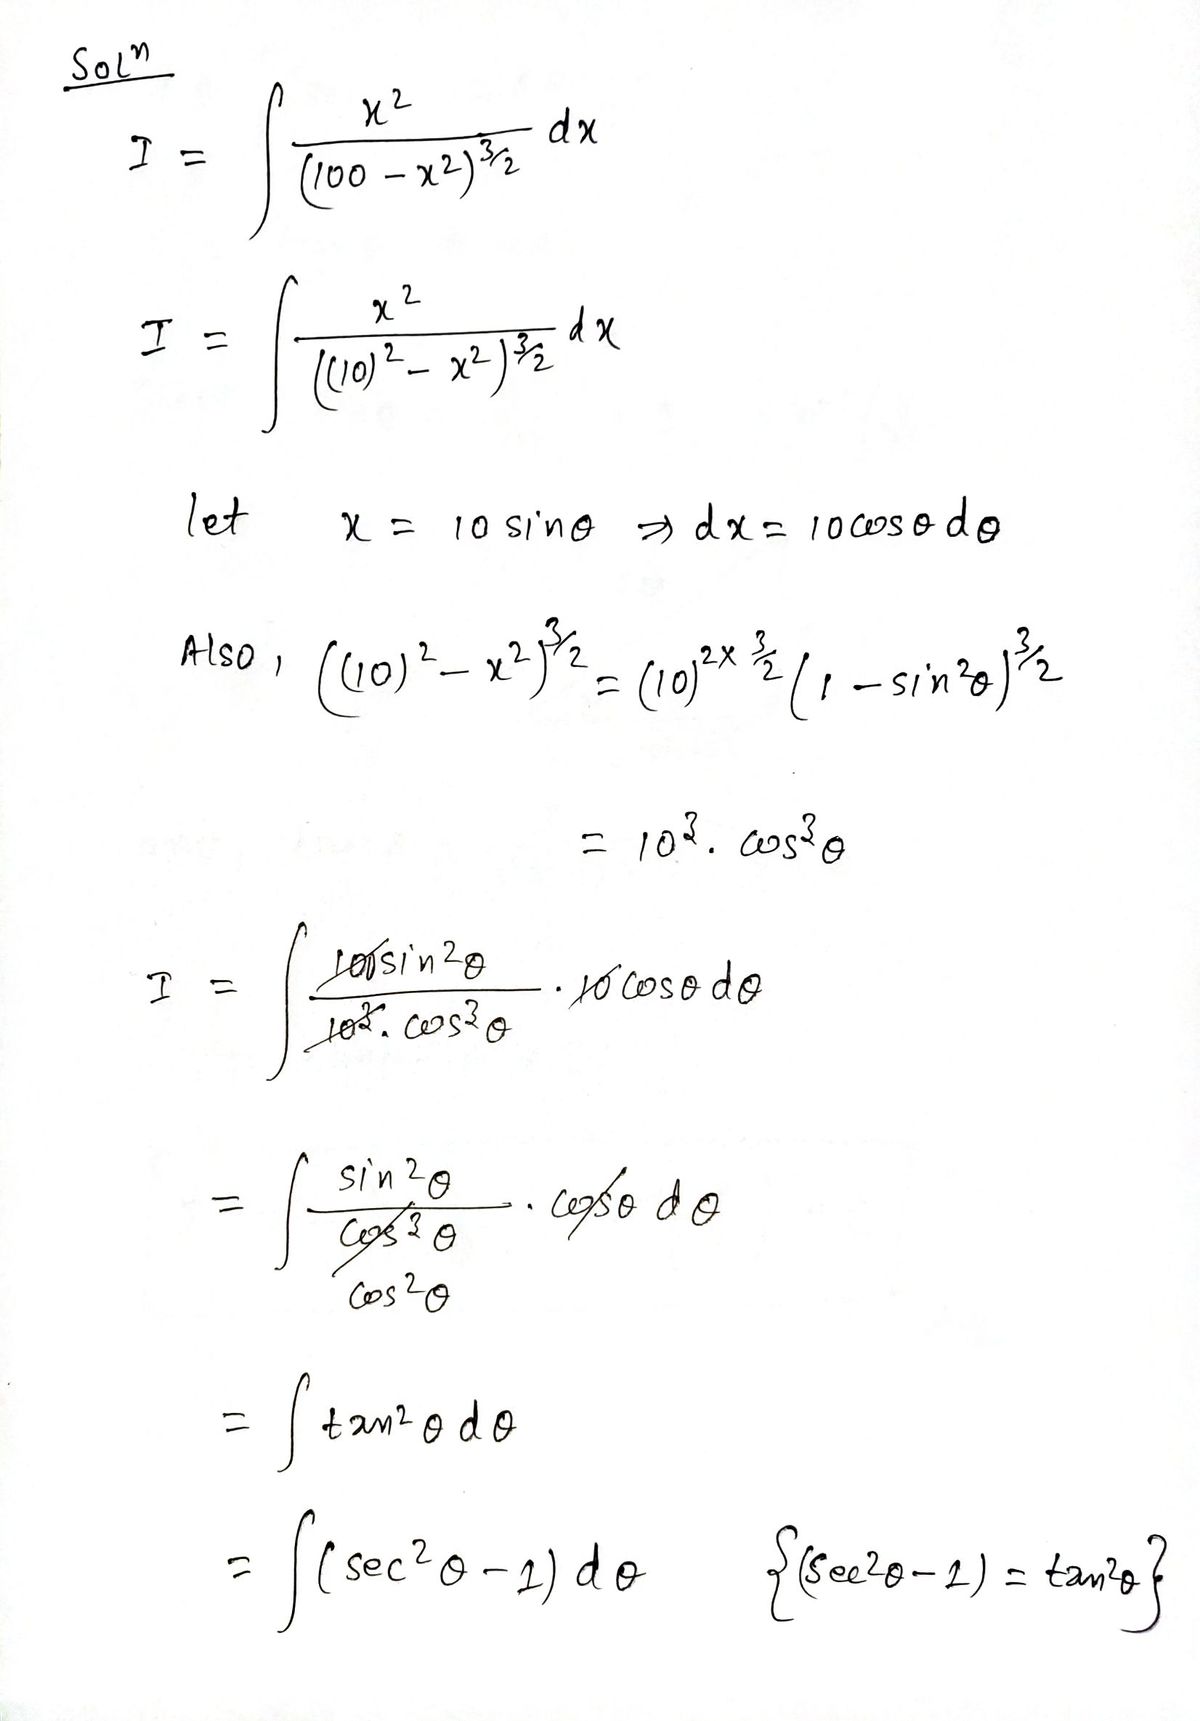 Solⁿ
I = ∫ x² / (100 - x²)^{3/2} dx
I = ∫ x² / ((10)² - x²)^{3/2} dx
let x = 10 sinθ ⇒ dx = 10 cosθ dθ
Also, ((10)² - x²)^{3/2} = (10)^{2x 3/2} (1 - sin²θ)^{3/2}
= 10³. cos³θ
I = ∫ 100 sin²θ / 10³. cos³θ . 10 cosθ dθ
= ∫ sin²θ / cos³θ . cosθ dθ
cos²θ
= ∫ tan²θ dθ
= ∫ (sec²θ - 1) dθ {(sec²θ - 1) = tan²θ}